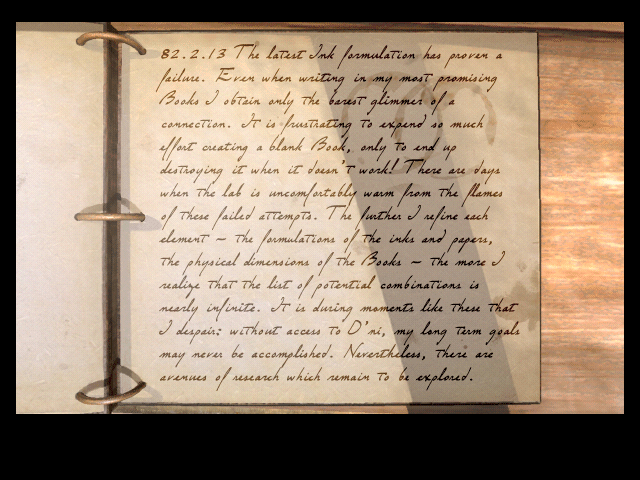 82.2.13 The latest Ink formulation has proven a
failure. Even when writing in my most promising
Books I obtain only the barest glimmer of a
connection. It is frustrating to expend so much
effort creating a blank Book, only to end up
destroying it when it doesn't work! There are days
when the lab is uncomfortably warm from the flames
of these failed attempts. The further I refine each
element – the formulations of the inks and papers,
the physical dimensions of the Books – the more I
realize that the list of potential combinations is
nearly infinite. It is during moments like these that
I despair: without access to D'ni, my long term goals
may never be accomplished. Nevertheless, there are
avenues of research which remain to be explored.